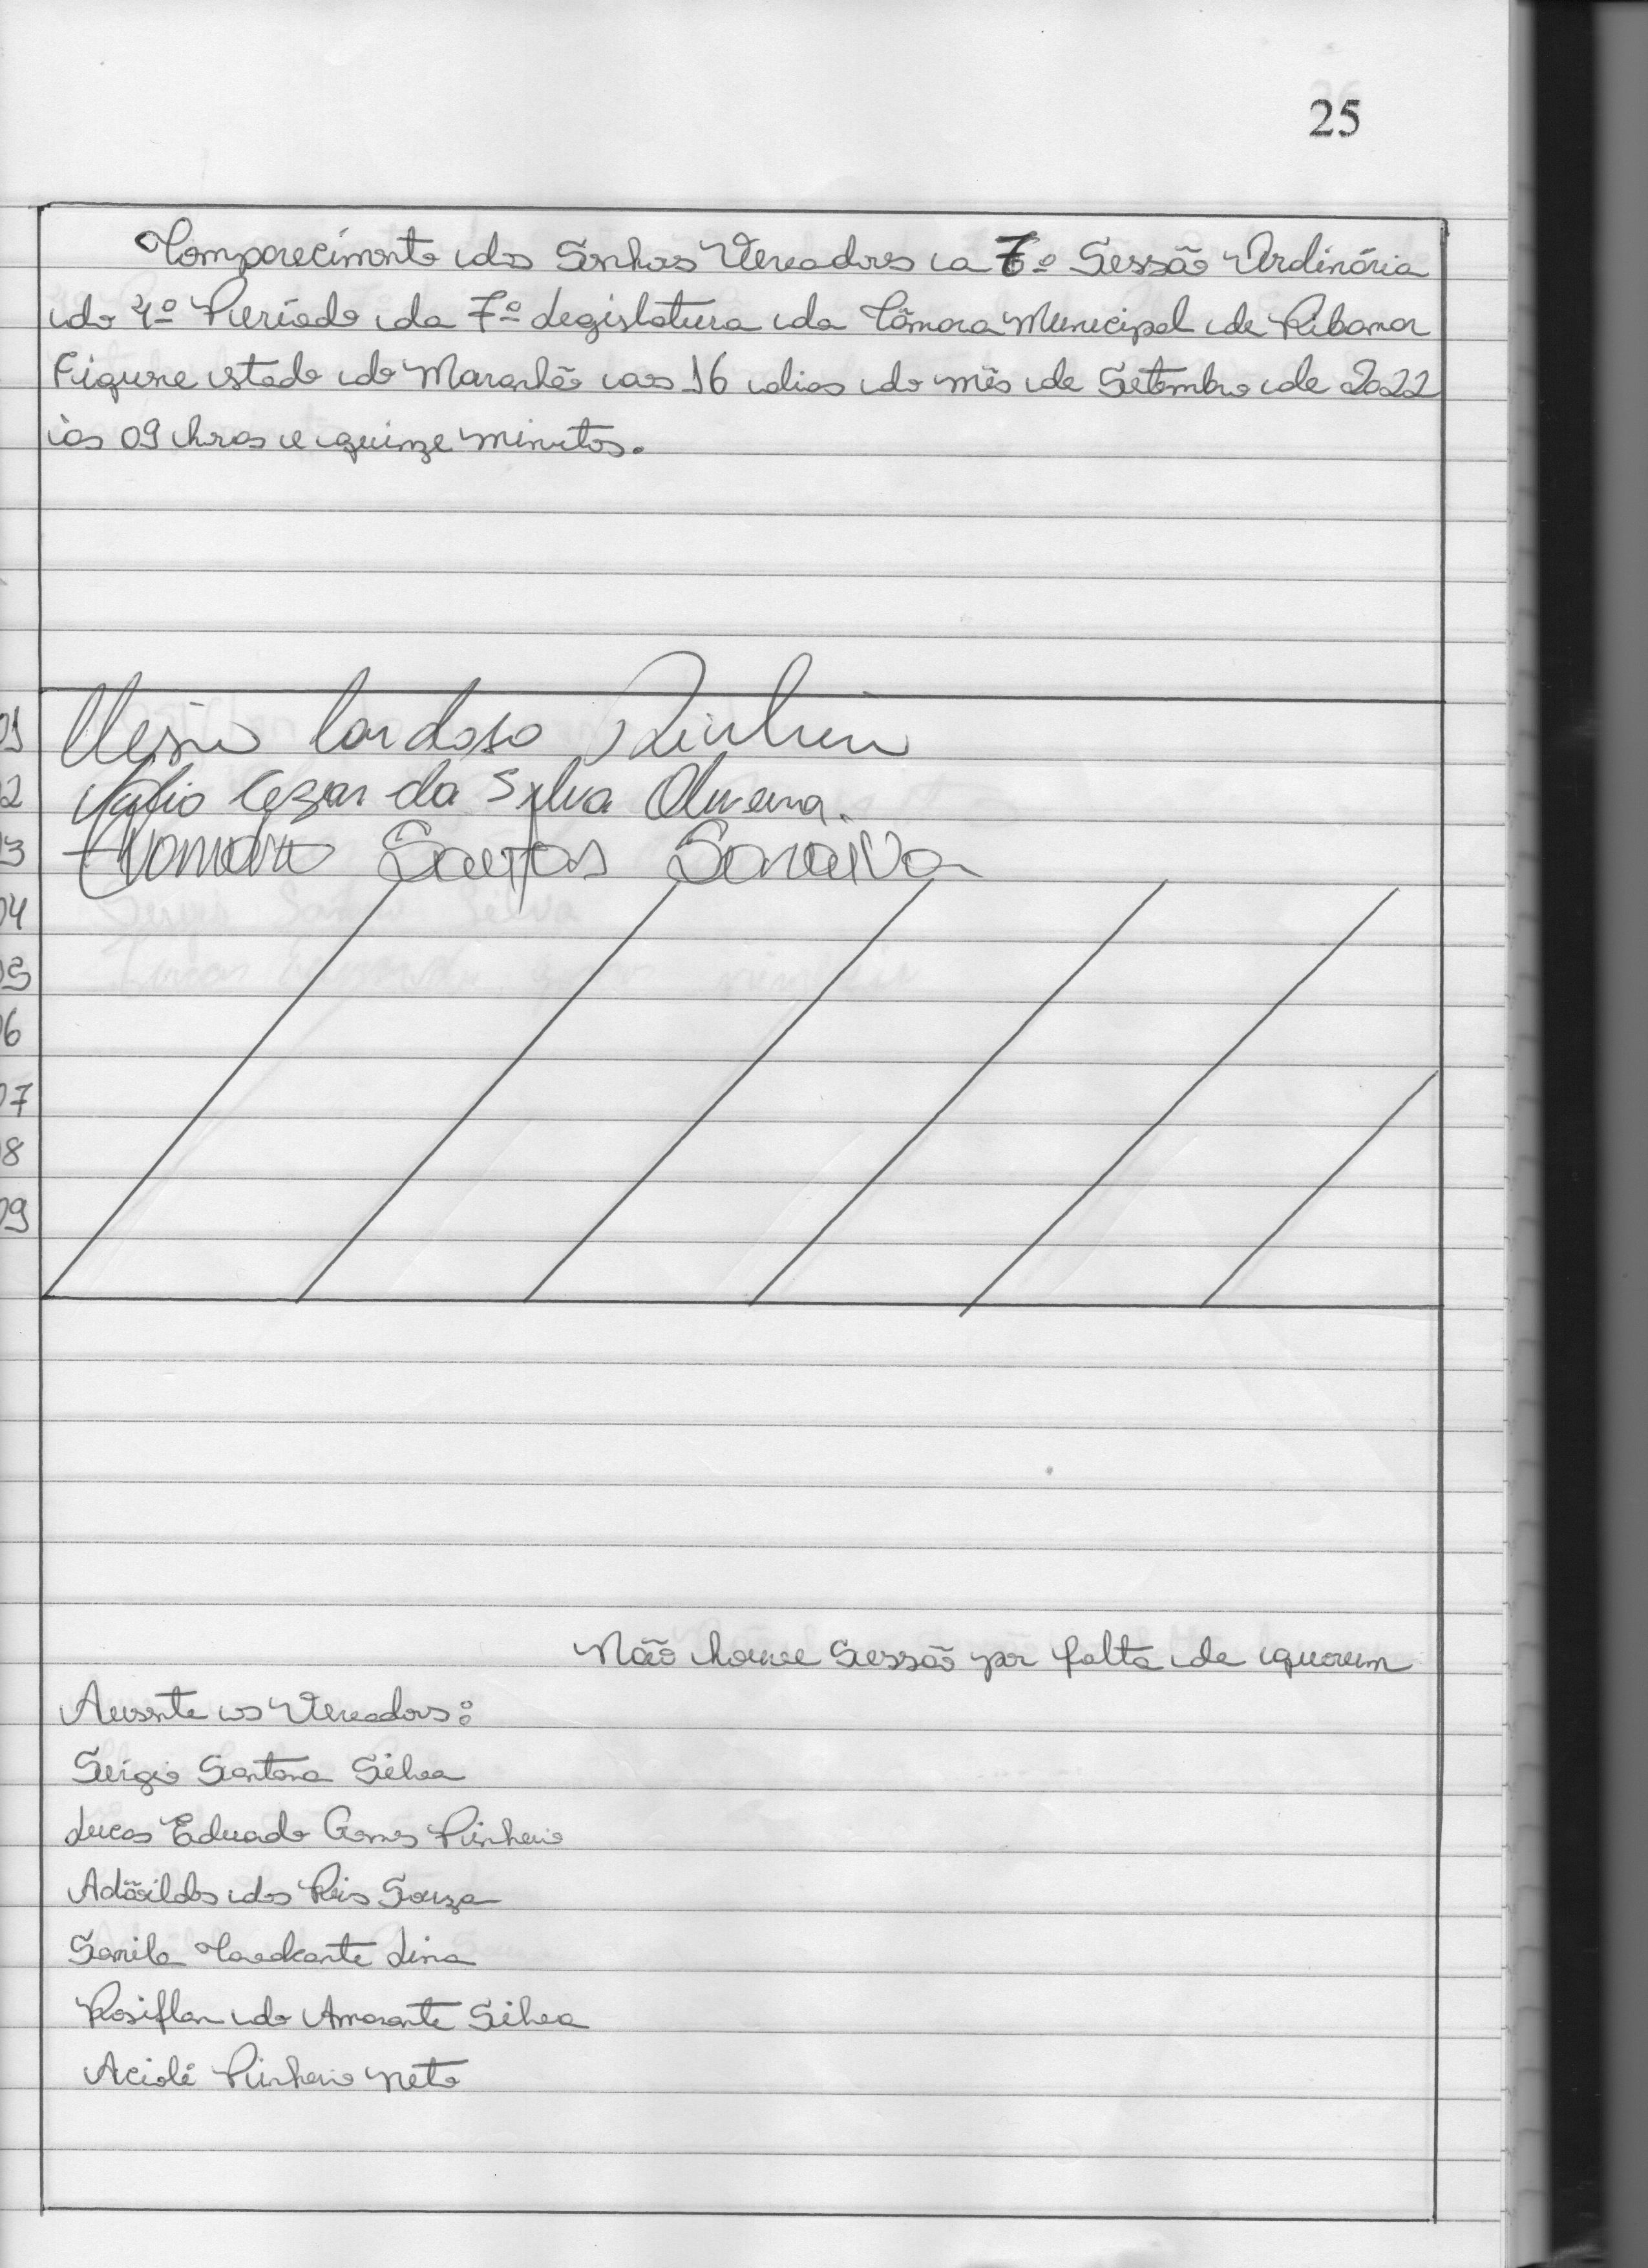 25
Comparecimento dos Senhores Vereadores a 7º Sessão Ordinária
do 4º Período da 7º Legislatura da Câmara Municipal de Ribamar
Fiquene estado do Maranhão aos 16 dias do mês de Setembro de 2022
às 09 horas e quinze minutos.
01 Cardoso Pinheiro
02 Cezar da Silva Oliveira.
03 Evandro Santos Saraiva
04
05
06
07
08
09
Não houve Sessão por falta de quorum
Ausente os Vereadores:
Sérgio Santana Silva
Lucas Eduardo Gomes Pinheiro
Adãoildos dos Reis Souza
Samila Cavalcante Lima
Rosiflan do Amarante Silva
Acioli Pinheiro Neto